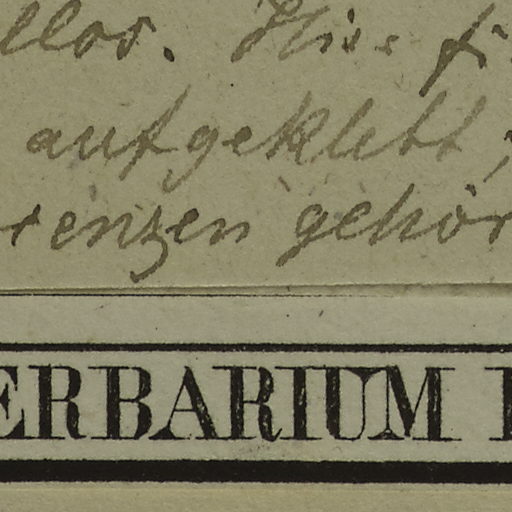 llos. Hie
aufgeklebt,
renzen gehör
ERBARIUM